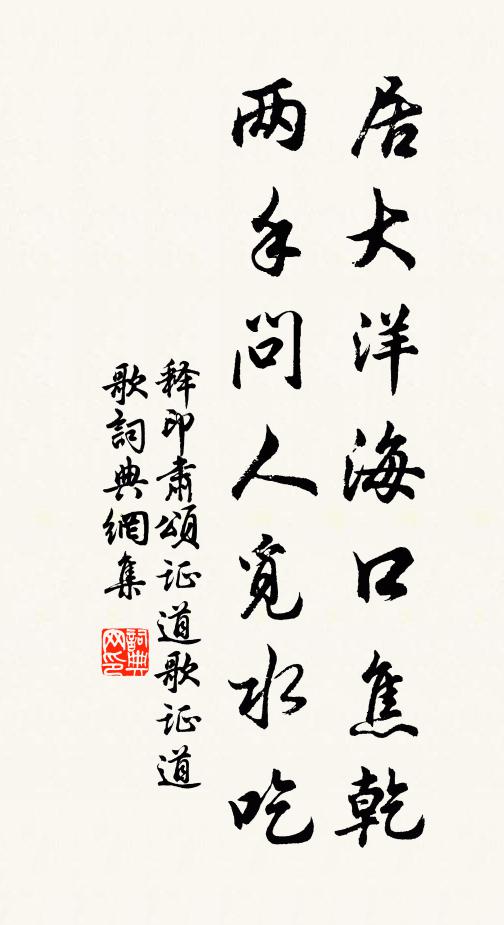 居大洋海口焦乾
两手问人觅水吃
释印肃颂证道歌证道
歌词典網集
詞典
网印